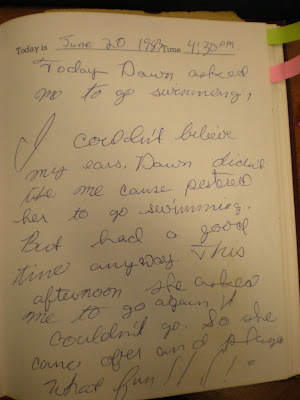 Today is June 20 1983 Time 4:30 p.m.
Today Dawn asked
me to go swimming!
I couldn't believe
my ears. Dawn didn't
like me cause pestered
her to go swimming.
But had a good
time anyway. This
afternoon she asked
me to go again I
couldn't go. So she
came over and plays
What fun!!!!